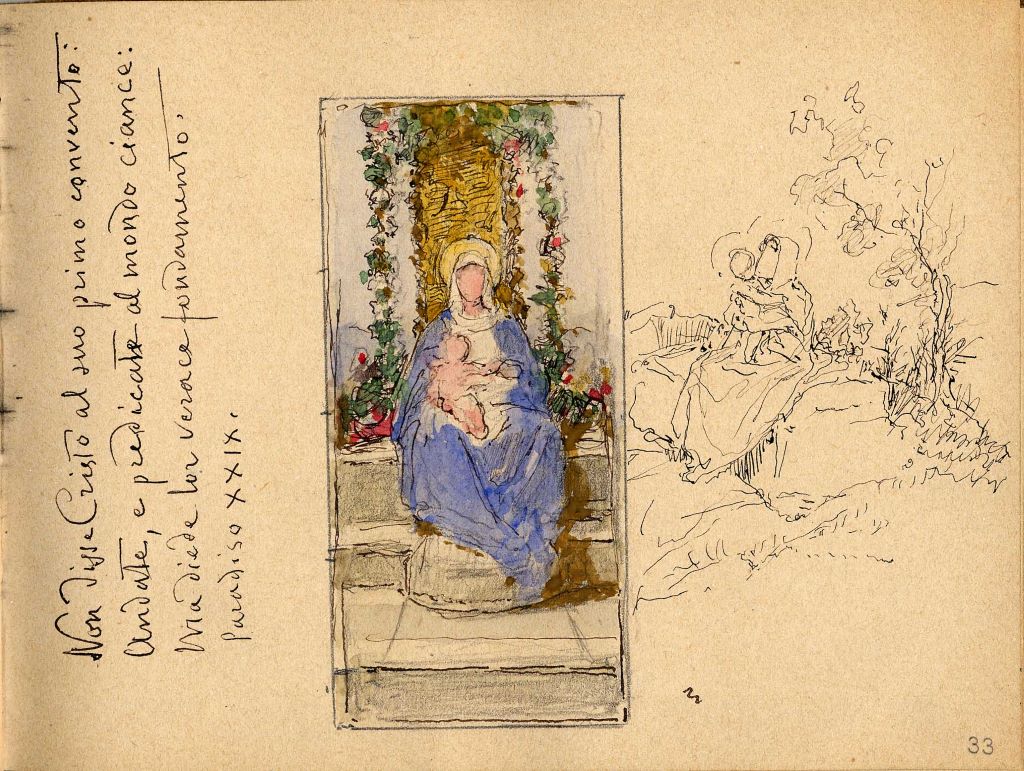 Non disse Cristo al suo primo convento:
Andate, e predicate al mondo ciance:
Ma diede lor verace fondamento.
Paradiso XXIX.
33